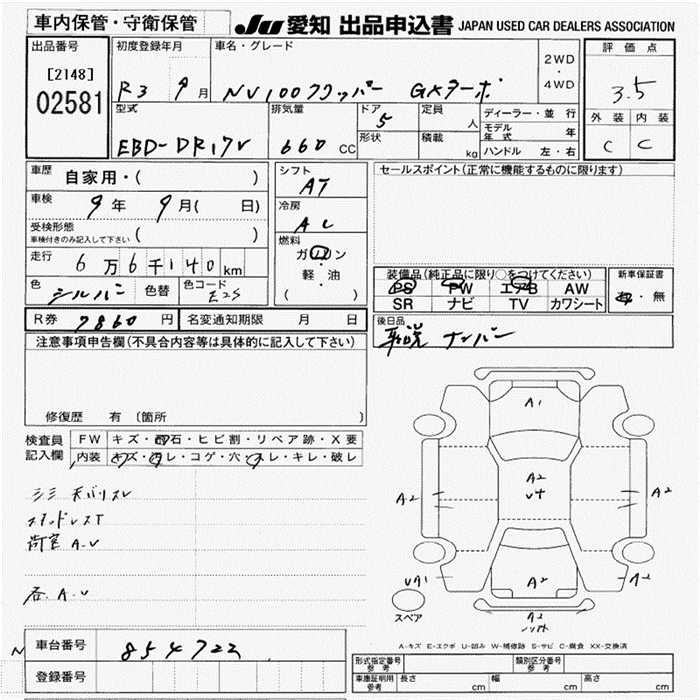 車内保管・守衛保管
JU 愛知 出品申込書 JAPAN USED CAR DEALERS ASSOCIATION
出品番号
[2148]
02581
初度登録年月
R3 9月
車名・グレード
NV100クリッパー GXターボ
2WD
・
4WD
評価点
3.5
外装 内装
C C
型式
EBD-DR17V
排気量
660 CC
ドア
5
形状
定員
人
積載
kg
ディーラー・並行
モデル年式 年
ハンドル 左・右
車歴 自家用・( )
車検 9年 9月( 日)
受検形態
車検付きのみ記入して下さい ( )
走行 6万6千140km
色 シルバー 色替 色コード
シフト
AT
冷房
AC
燃料
ガソリン
・
軽・油
( )
セールスポイント(正常に機能するものに限ります)
装備品(純正品に限り○をつけてください)
PS PW エアB AW
SR ナビ TV カワシート
新車保証書
有・無
後日品
ナンバー
R券 7860円
名変通知期限 月 日
注意事項申告欄(不具合内容等は具体的に記入して下さい)
修復歴 有 〔箇所 〕
検査員記入欄
FW キズ・飛石・ヒビ割・リペア跡・X要
内装 キズ・汚レ・コゲ・穴・スレ・キレ・破レ
荷室 A.U
各 A.U
A1
A2
A2
A2
UA1
A2
A2
スペア
A-キズ E-エクボ U-凹み W-補修跡 S-サビ C-腐食 XX-交換済
車台番号 854722
登録番号
形式指定番号
参考
類別区分番号
参考
車庫証明用
参考
長さ cm
幅 cm
高さ cm